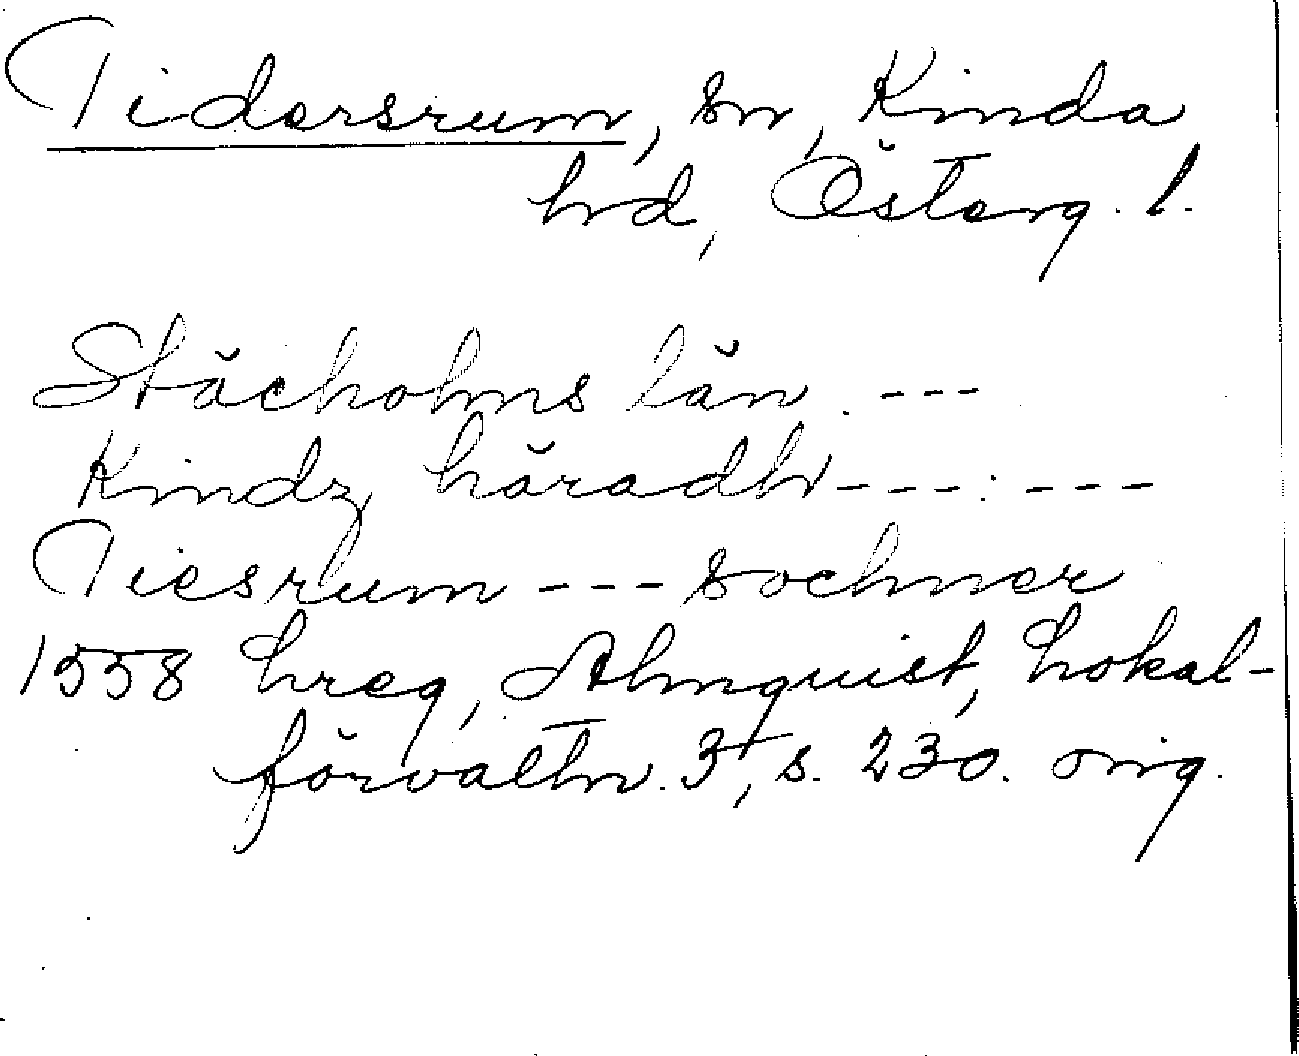 Tidersrum, sn, Kinda
hrd, Österg. l.
Stächolms län. ---
Kindz häradh ---:---
Tiesrum --- sochner
1558 hreg, Almquist, Lokal-
förvaltn. 3, s. 230. orig.